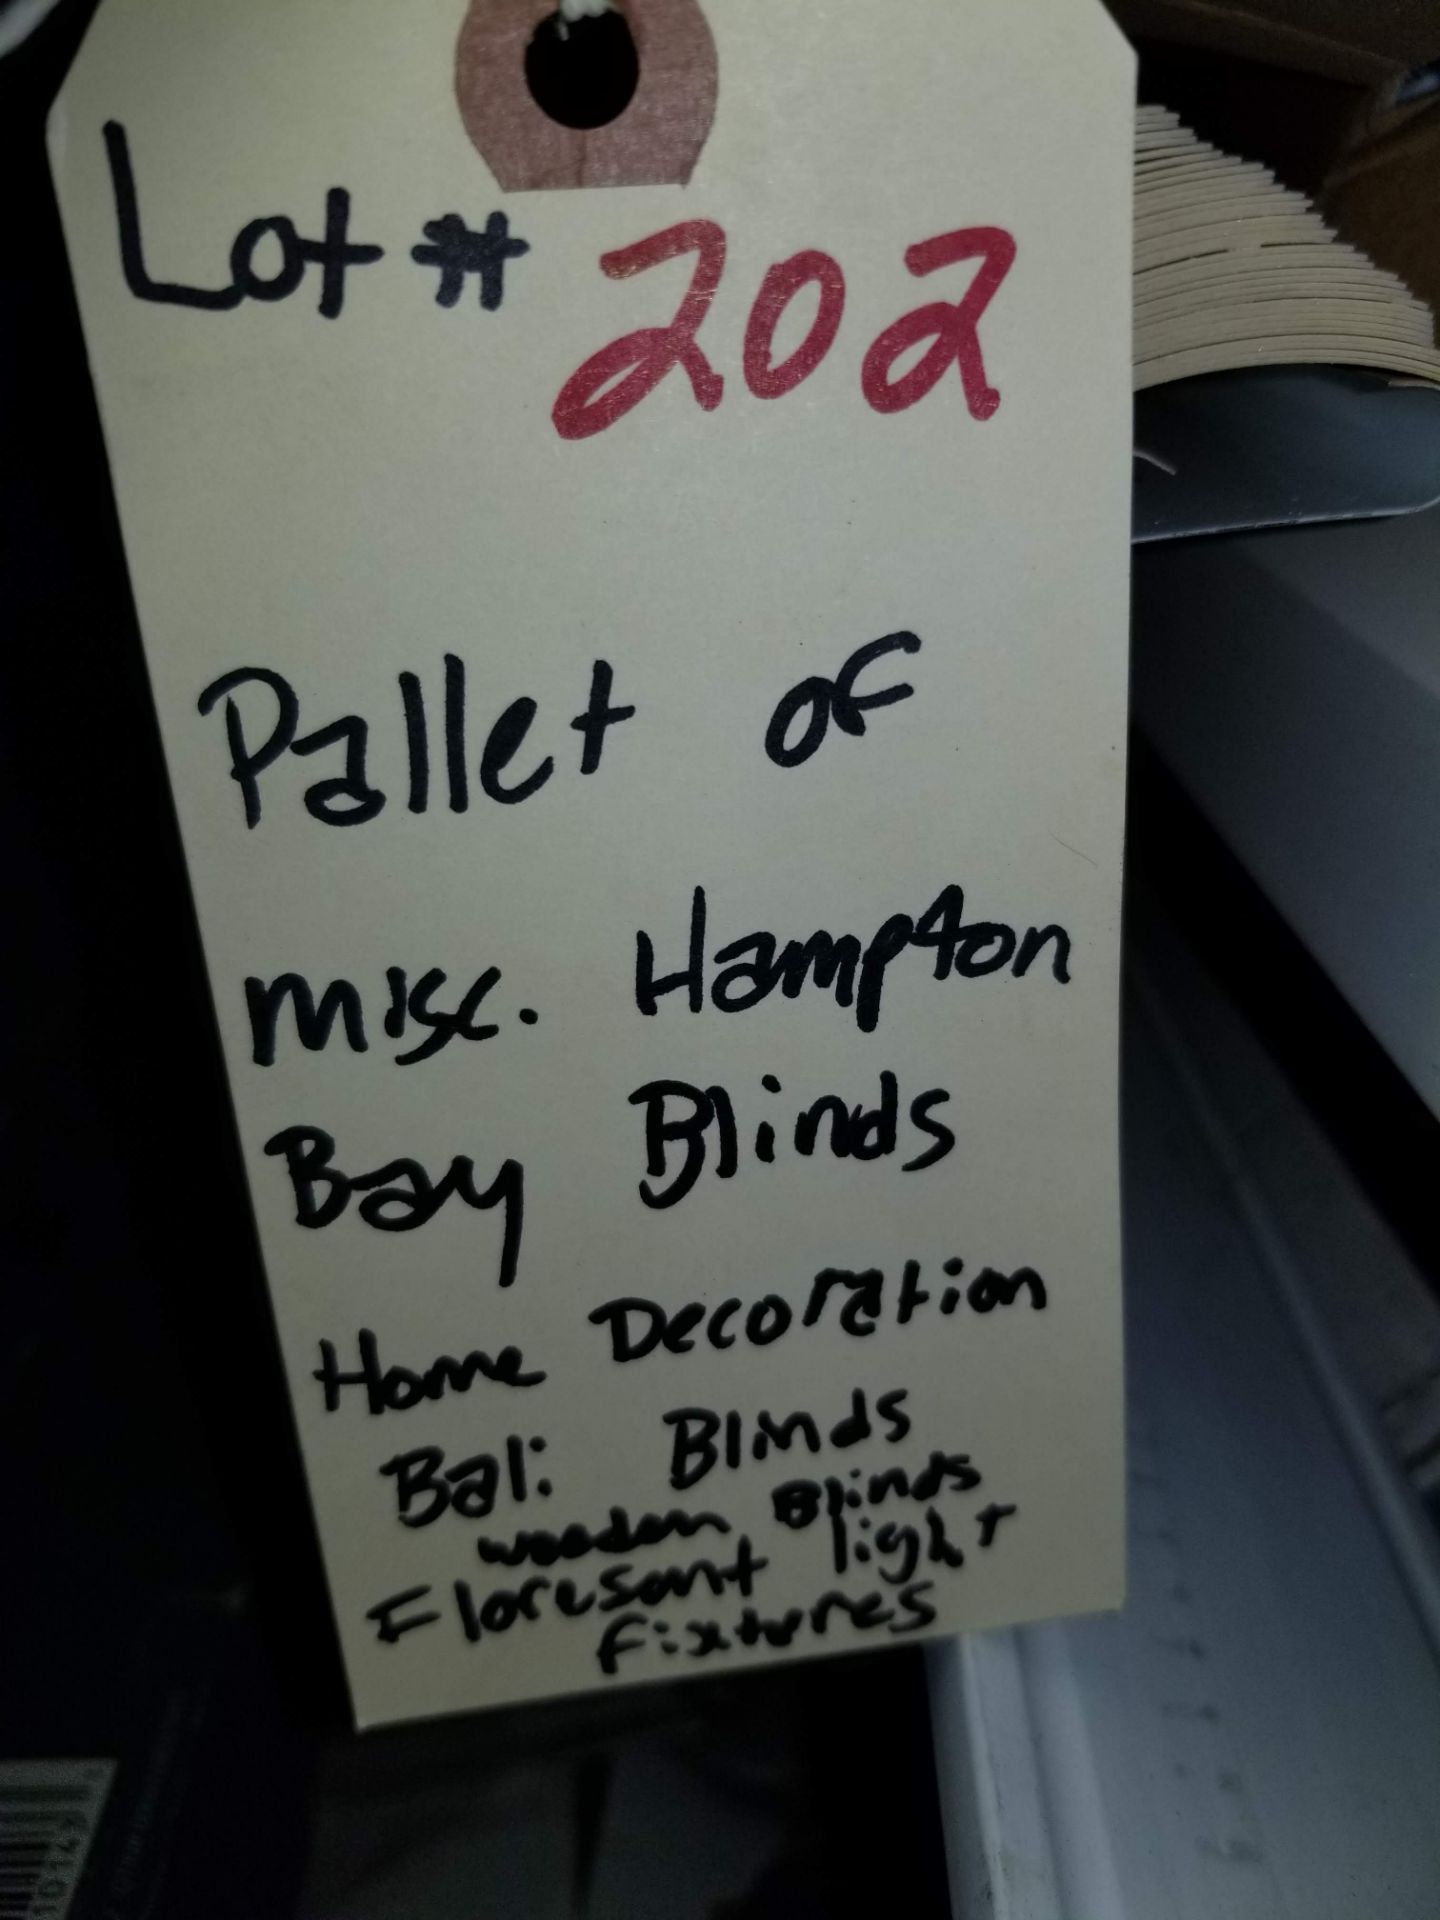 Lot # 202
Pallet of
misc. Hampton
Bay Blinds
Home Decoration
Bali Blinds
wooden Blinds
Floresant light
Fixtures